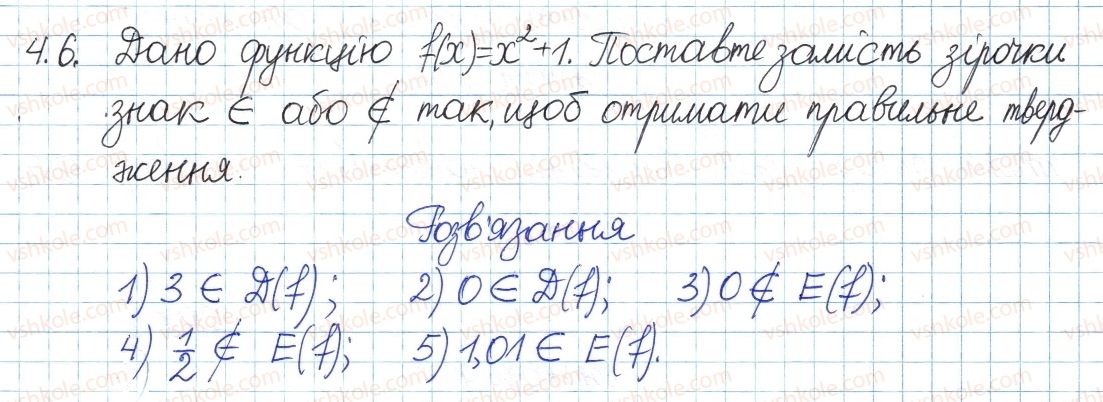 4.6. Дано функцію f(x)=x²+1. Поставте замість зірочки
знак ∈ або ∉ так, щоб отримати правильне тверд-
ження.
Розв'язання
1) 3 ∈ D(f); 2) 0 ∈ D(f); 3) 0 ∉ E(f);
4) 1/2 ∉ E(f); 5) 1,01 ∈ E(f).